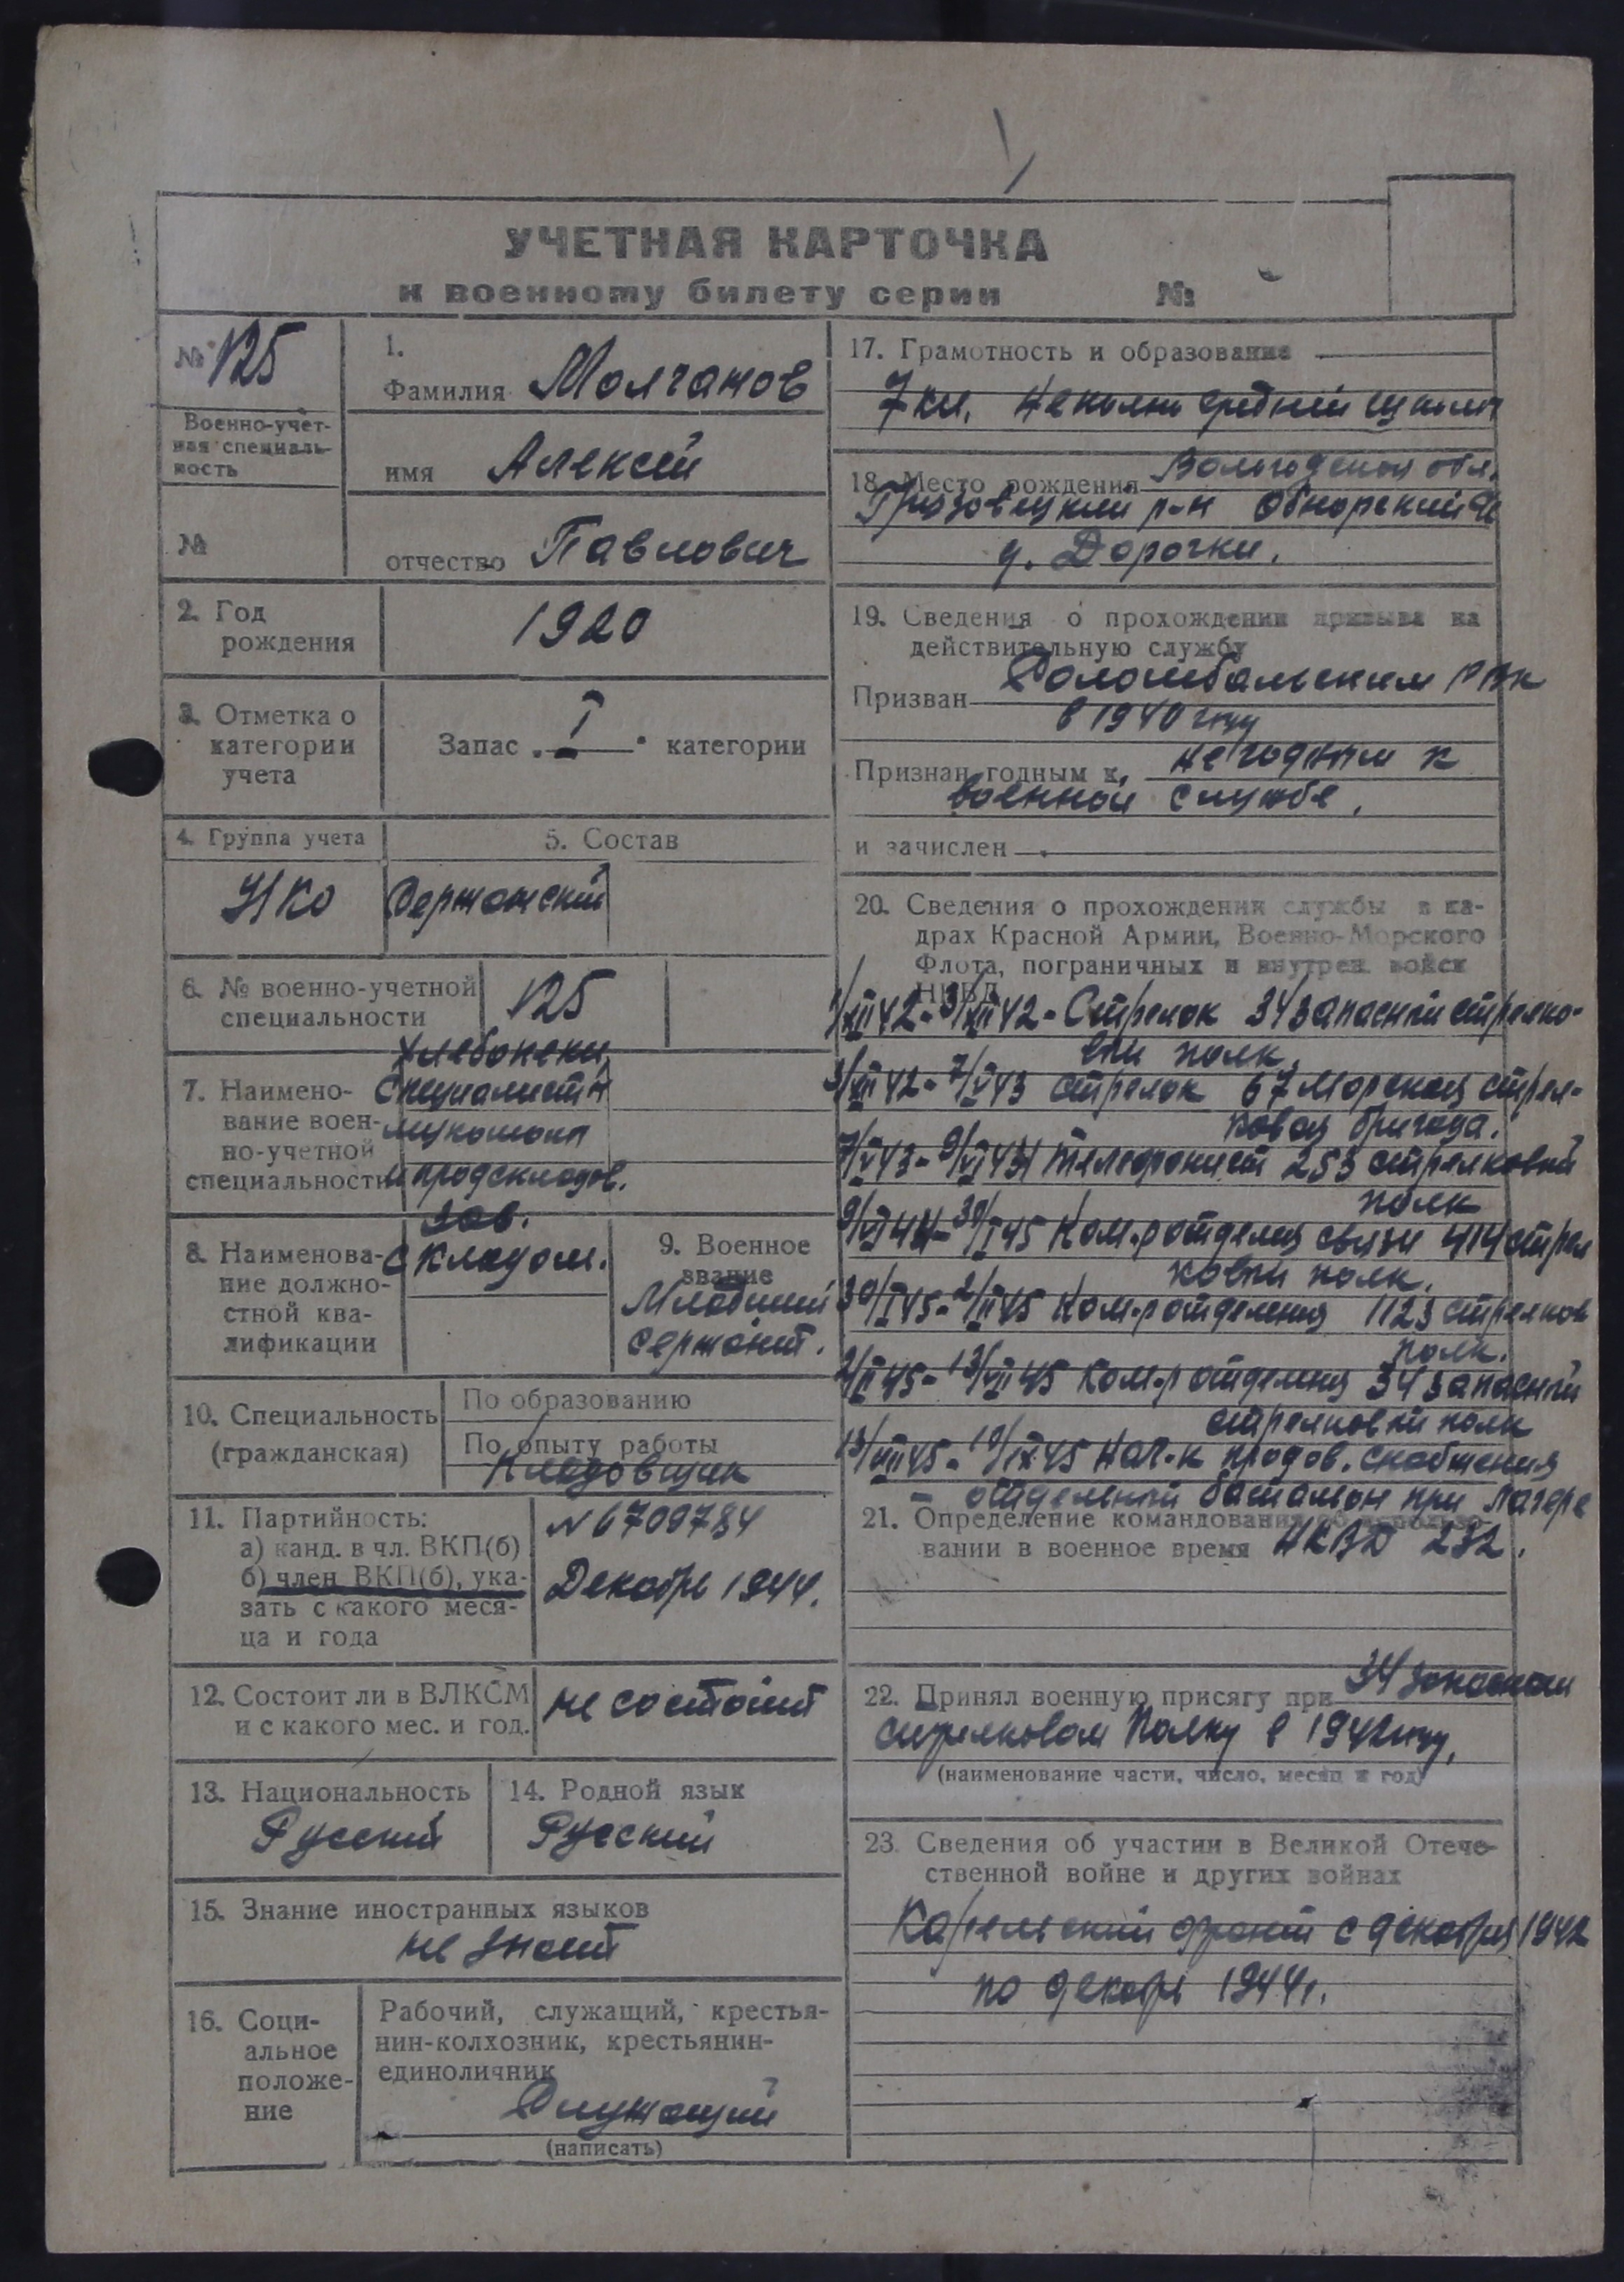 УЧЕТНАЯ КАРТОЧКА
к военному билету серии №
№ 125
Военно-учет-
ная специаль-
ность
№
1.
Фамилия Молчанов
имя Алексей
отчество Павлович
2. Год
рождения
1920
3. Отметка о
категории
учета
Запас I категории
4. Группа учета
НКО
5. Состав
Сержанский
6. № военно-учетной
специальности
125
7. Наимено-
вание воен-
но-учетной
специальности
Хлебопеки,
специалисты
мукомолы
и продскладов.
8. Наименова-
ние должно-
стной ква-
лификации
Зав.
складом.
9. Военное
звание
Младший
сержант.
10. Специальность
(гражданская)
По образованию
По опыту работы
Кладовщик
11. Партийность:
а) канд. в чл. ВКП(б)
б) член ВКП(б), ука-
зать с какого меся-
ца и года
№ 6709784
Декабрь 1944.
12. Состоит ли в ВЛКСМ
и с какого мес. и год.
не состоит
13. Национальность
Русский
14. Родной язык
Русский
15. Знание иностранных языков
не знает
16. Соци-
альное
положе-
ние
Рабочий, служащий, крестья-
нин-колхозник, крестьянин-
единоличник
Служащий
(написать)
17. Грамотность и образование
7 кл. неполн средний школы
18. Место рождения Вологодской обл.
Грязовецкий р-н Обнорский
д. Дорочки.
19. Сведения о прохождении призыва на
действительную службу
Призван Соломбальским РВК
в 1940 году
Признан годным к не годным к
военной службе.
и зачислен
20. Сведения о прохождении службы в ка-
драх Красной Армии, Военно-Морского
Флота, пограничных и внутрен. войск
НКВД
1/XII 42 - 31/XII 42 - Стрелок 34 запасный стрелко-
вый полк.
31/XII 42 - 7/V 43 стрелок 67 морская стрел-
ковая бригада.
7/V 43 - 9/VI 44 телефонист 253 стрелковый
полк
9/VI 44 - 30/I 45 Ком-р отделен связи 414 стрел
ковый полк.
30/I 45 - 2/II 45 Ком-р отделения 1123 стрелков
полк.
2/II 45 - 13/VIII 45 Ком-р отделения 34 запасный
стрелковый полк
13/VIII 45 - 19/IX 45 Нач-к продов. снабжения
- отдельный батальон при лагере
НКВД 232.
21. Определение командования об использо-
вании в военное время
22. Принял военную присягу при 34 запасном
стрелковом полку в 1942 году.
(наименование части, число, месяц и год)
23. Сведения об участии в Великой Отече-
ственной войне и других войнах
Карельский фронт с декабря 1942
по декабрь 1944 г.